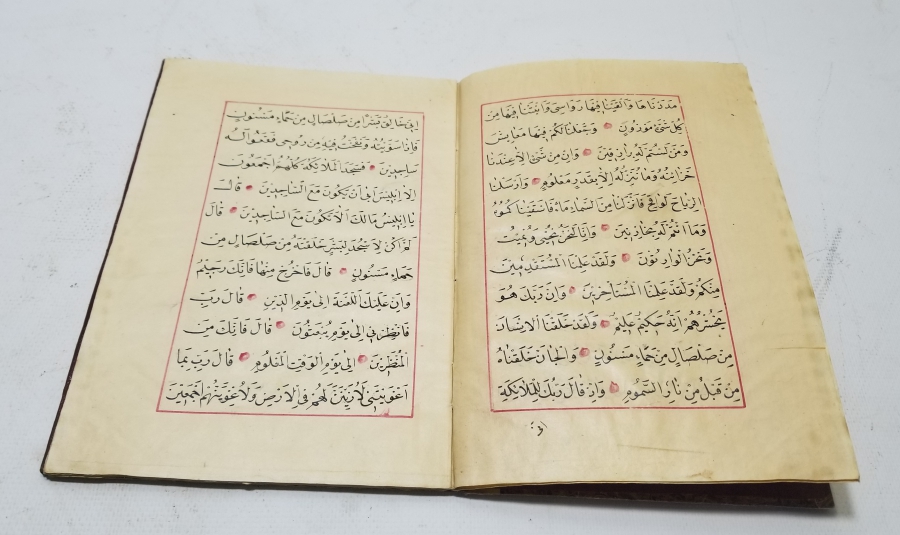 مَدَدْنَاهَا وَاَلْقَيْنَا فِيهَا رَوَاسِىَ وَاَنْبَتْنَا فِيهَا مِنْ
كُلِّ شَىْءٍ مَوْزُونٍ وَجَعَلْنَا لَكُمْ فِيهَا مَعَايِشَ
وَمَنْ لَسْتُمْ لَهُ بِرَازِقِينَ وَاِنْ مِنْ شَىْءٍ اِلَّا عِنْدَنَا
خَزَائِنُهُ وَمَا نُنَزِّلُهُ اِلَّا بِقَدَرٍ مَعْلُومٍ وَاَرْسَلْنَا
الرِّيَاحَ لَوَاقِحَ فَاَنْزَلْنَا مِنَ السَّمَاءِ مَاءً فَاَسْقَيْنَاكُمُوهُ
وَمَا اَنْتُمْ لَهُ بِخَازِنِينَ وَاِنَّا لَنَحْنُ نُحْيِى وَنُمِيتُ
وَنَحْنُ الْوَارِثُونَ وَلَقَدْ عَلِمْنَا الْمُسْتَقْدِمِينَ
مِنْكُمْ وَلَقَدْ عَلِمْنَا الْمُسْتَأْخِرِينَ وَاِنَّ رَبَّكَ هُوَ
يَحْشُرُهُمْ اِنَّهُ حَكِيمٌ عَلِيمٌ وَلَقَدْ خَلَقْنَا الْاِنْسَانَ
مِنْ صَلْصَالٍ مِنْ حَمَاٍ مَسْنُونٍ وَالْجَانَّ خَلَقْنَاهُ
مِنْ قَبْلُ مِنْ نَارِ السَّمُومِ وَاِذْ قَالَ رَبُّكَ لِلْمَلَائِكَةِ
اِنِّى
اِنِّى خَالِقٌ بَشَرًا مِنْ صَلْصَالٍ مِنْ حَمَاٍ مَسْنُونٍ
فَاِذَا سَوَّيْتُهُ وَنَفَخْتُ فِيهِ مِنْ رُوحِى فَقَعُوا لَهُ
سَاجِدِينَ فَسَجَدَ الْمَلَائِكَةُ كُلُّهُمْ اَجْمَعُونَ
اِلَّا اِبْلِيسَ اَبَى اَنْ يَكُونَ مَعَ السَّاجِدِينَ قَالَ
يَا اِبْلِيسُ مَا لَكَ اَلَّا تَكُونَ مَعَ السَّاجِدِينَ قَالَ
لَمْ اَكُنْ لِاَسْجُدَ لِبَشَرٍ خَلَقْتَهُ مِنْ صَلْصَالٍ مِنْ
حَمَاٍ مَسْنُونٍ قَالَ فَاخْرُجْ مِنْهَا فَاِنَّكَ رَجِيمٌ
وَاِنَّ عَلَيْكَ اللَّعْنَةَ اِلَى يَوْمِ الدِّينِ قَالَ رَبِّ
فَاَنْظِرْنِى اِلَى يَوْمِ يُبْعَثُونَ قَالَ فَاِنَّكَ مِنَ
الْمُنْظَرِينَ اِلَى يَوْمِ الْوَقْتِ الْمَعْلُومِ قَالَ رَبِّ بِمَا
اَغْوَيْتَنِى لَاُزَيِّنَنَّ لَهُمْ فِى الْاَرْضِ وَلَاُغْوِيَنَّهُمْ اَجْمَعِينَ